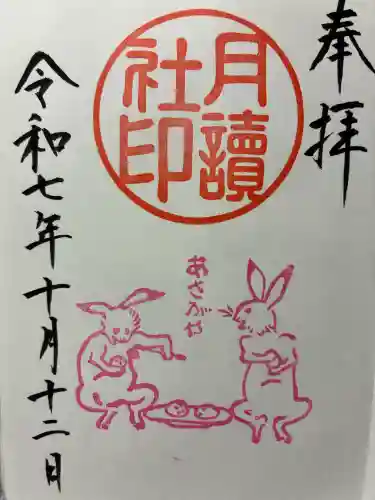 奉拝
月讀社印
あさがや
令和七年十月十二日